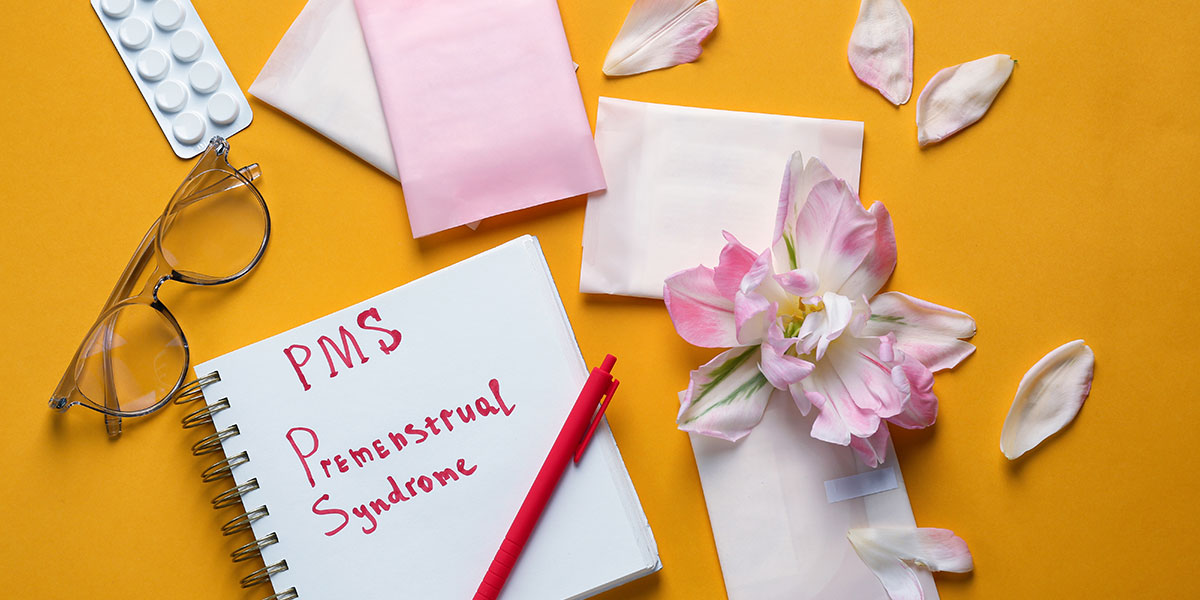 PMS
Premenstrual
Syndrome